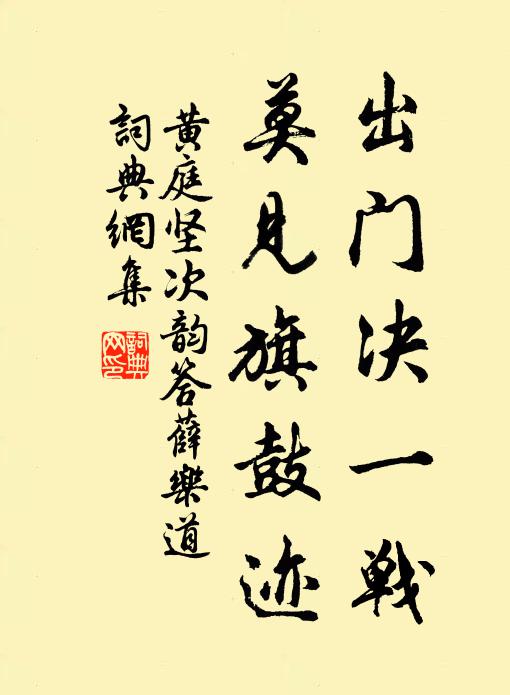 出门决一戦
莫见旗鼓迹
黄庭坚次韵答薛樂道
詞典網集
詞典
网印